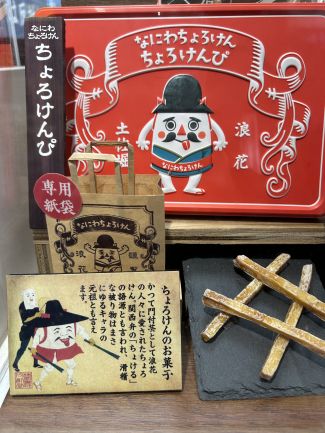 なにわ
ちょろけん
ちょろけんぴ
なにわちょろけん
ちょろけんぴ
土佐堀
浪花
なにわちょろけん
専用
紙袋
なにわちょろけん
浪花
ちょろけんのお菓子
かつて門付芸として浪花
の人々に愛されたちょろ
けん。関西弁の「ちょける」
の語源とも言われ、滑稽
な被り物はまさ
にゆるキャラの
元祖とも言え
ます。